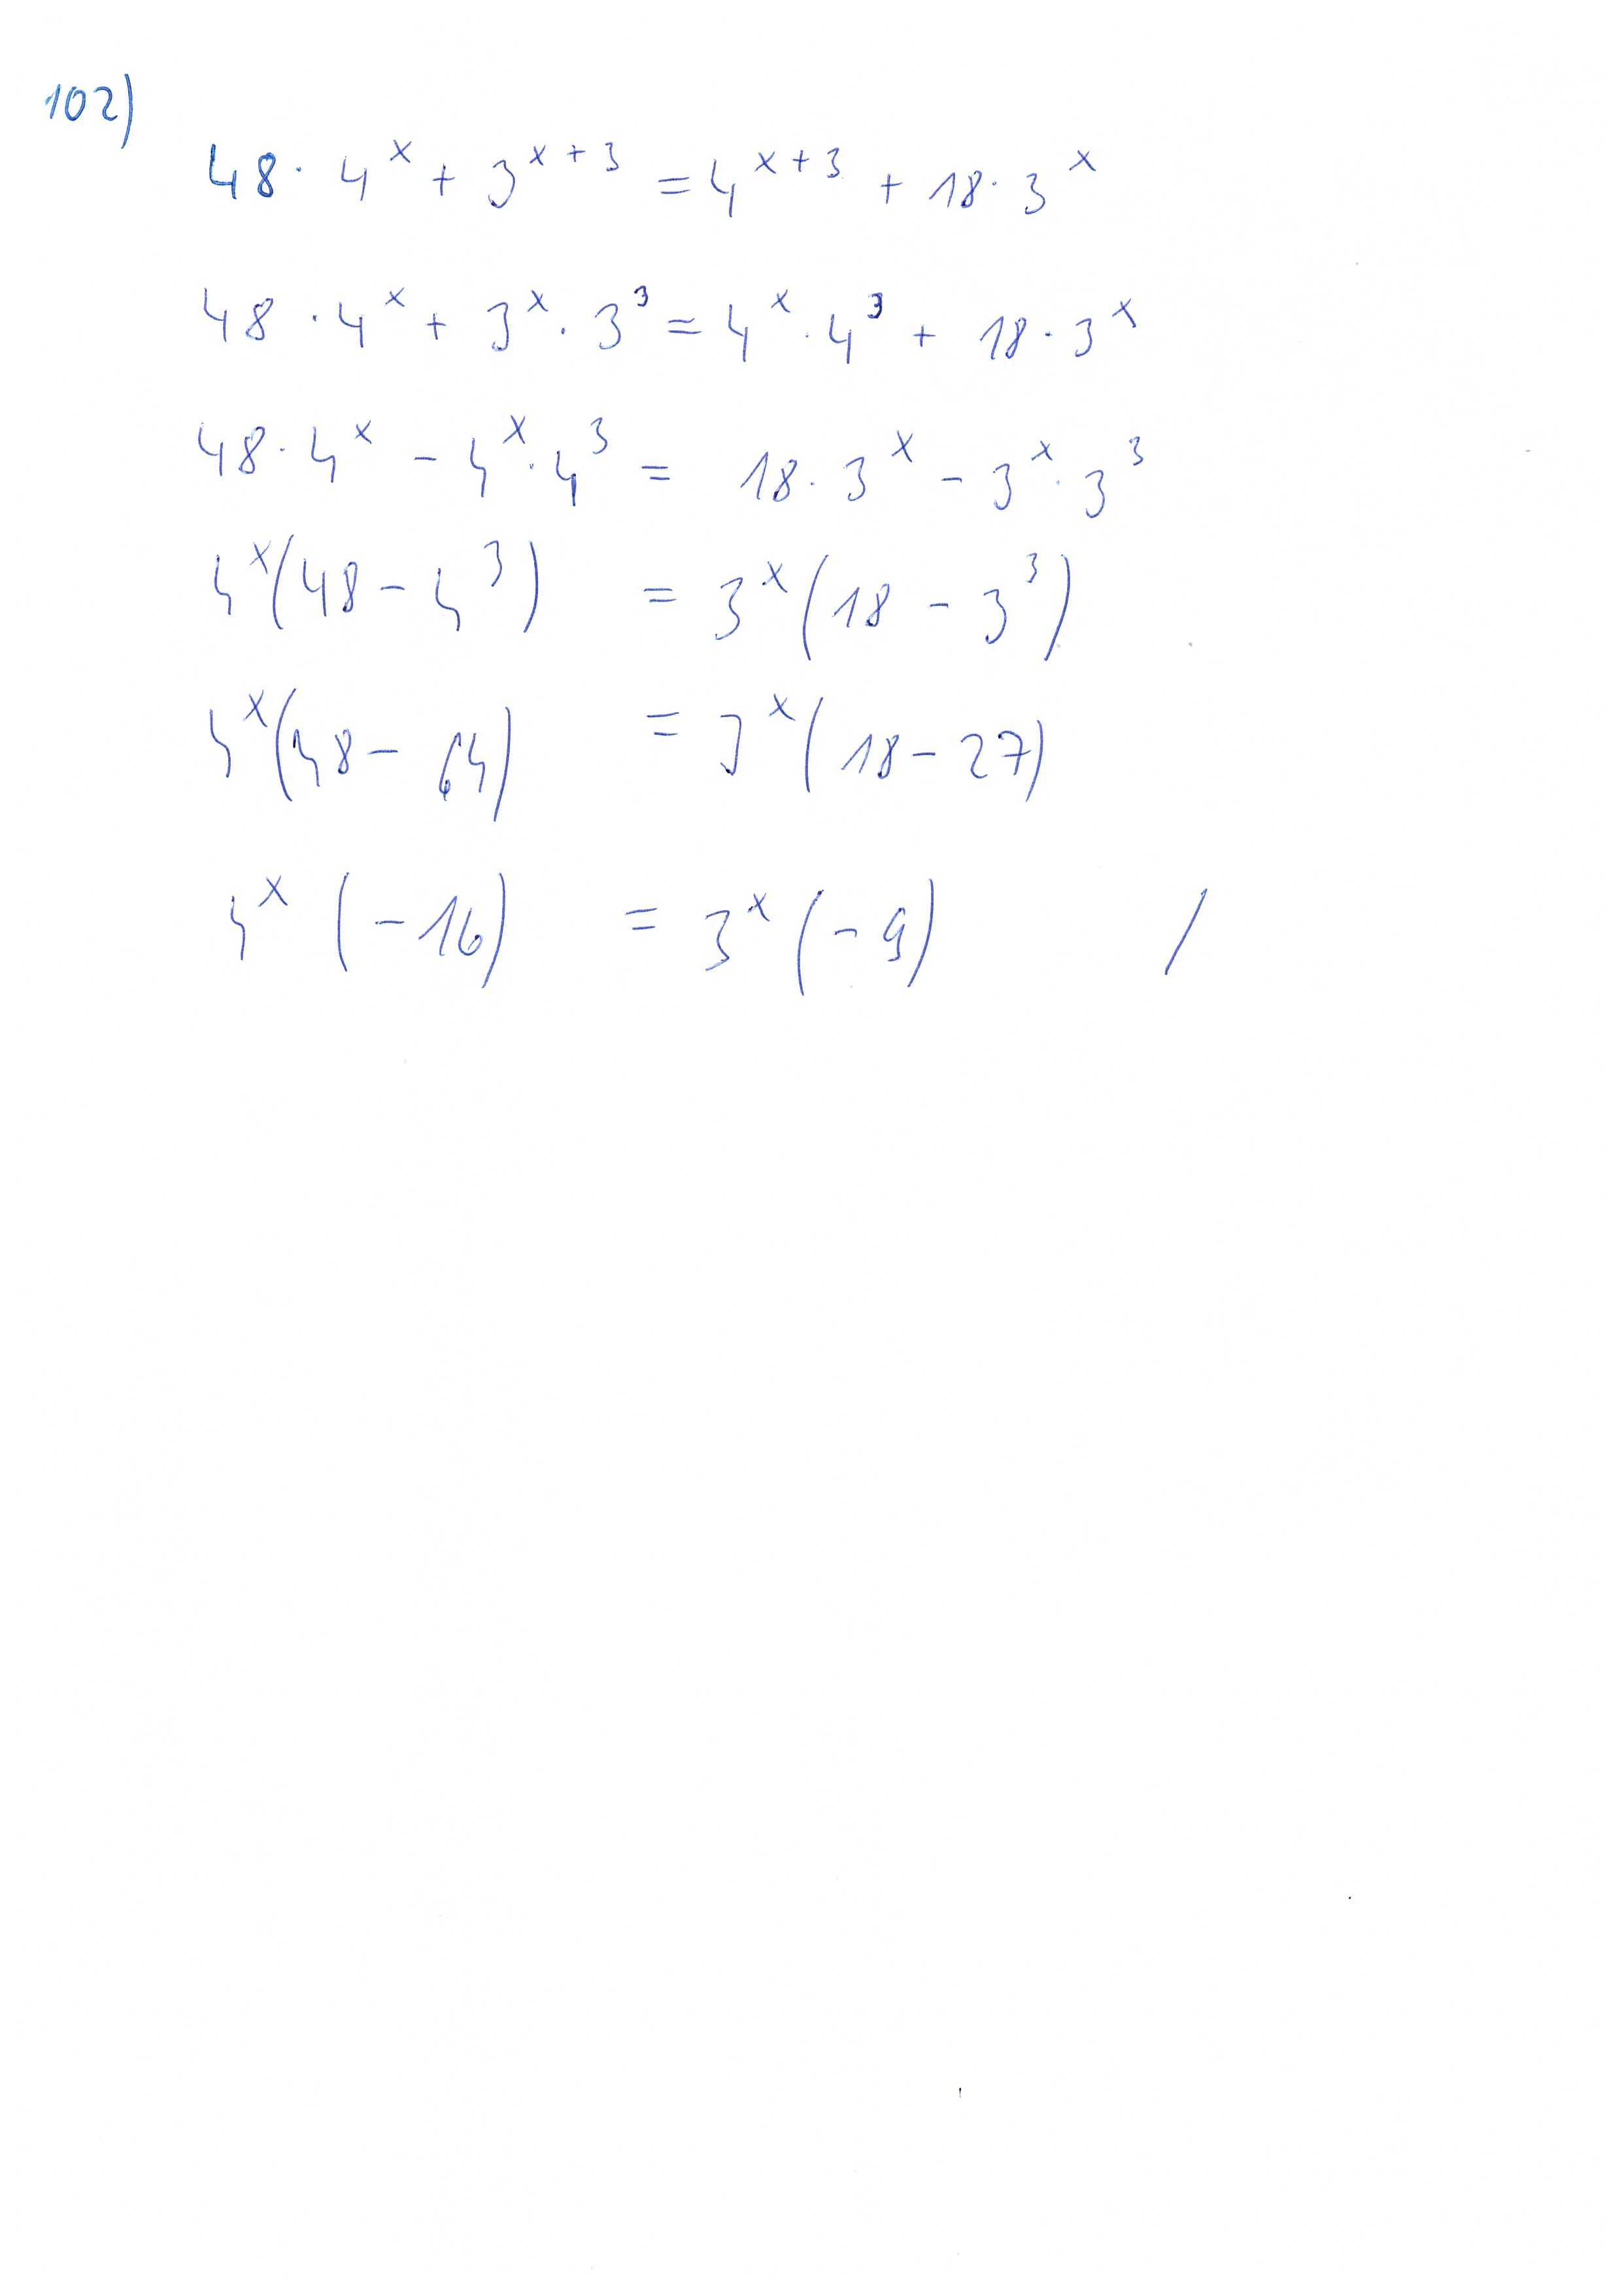 102)
48 · 4^x + 3^{x+3} = 4^{x+3} + 18 · 3^x
48 · 4^x + 3^x · 3^3 = 4^x · 4^3 + 18 · 3^x
48 · 4^x - 4^x · 4^3 = 18 · 3^x - 3^x · 3^3
4^x (48 - 4^3) = 3^x (18 - 3^3)
4^x (48 - 64) = 3^x (18 - 27)
4^x (-16) = 3^x (-9) /